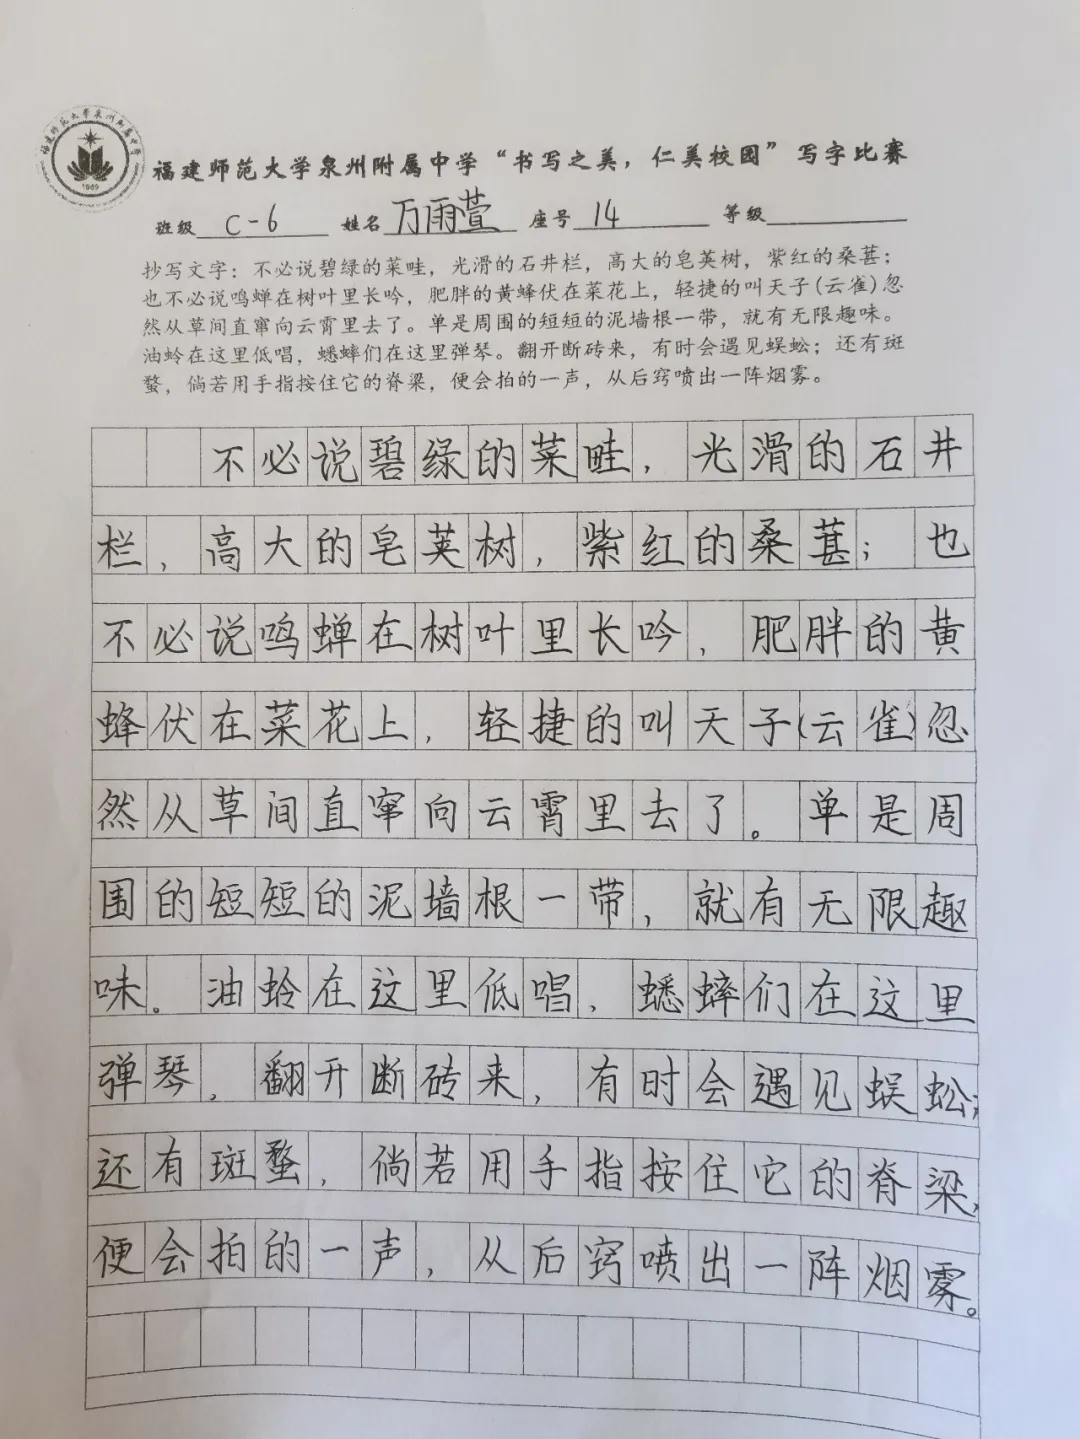 福建师范大学泉州附属中学
1969
福建师范大学泉州附属中学“书写之美，仁美校园”写字比赛
班级 C-6 姓名 万雨萱 座号 14 等级
抄写文字：不必说碧绿的菜畦，光滑的石井栏，高大的皂荚树，紫红的桑葚；
也不必说鸣蝉在树叶里长吟，肥胖的黄蜂伏在菜花上，轻捷的叫天子(云雀)忽
然从草间直窜向云霄里去了。单是周围的短短的泥墙根一带，就有无限趣味。
油蛉在这里低唱，蟋蟀们在这里弹琴。翻开断砖来，有时会遇见蜈蚣；还有斑
蝥，倘若用手指按住它的脊梁，便会拍的一声，从后窍喷出一阵烟雾。
不必说碧绿的菜畦，光滑的石井
栏，高大的皂荚树，紫红的桑葚；也
不必说鸣蝉在树叶里长吟，肥胖的黄
蜂伏在菜花上，轻捷的叫天子(云雀)忽
然从草间直窜向云霄里去了。单是周
围的短短的泥墙根一带，就有无限趣
味。油蛉在这里低唱，蟋蟀们在这里
弹琴。翻开断砖来，有时会遇见蜈蚣；
还有斑蝥，倘若用手指按住它的脊梁，
便会拍的一声，从后窍喷出一阵烟雾。